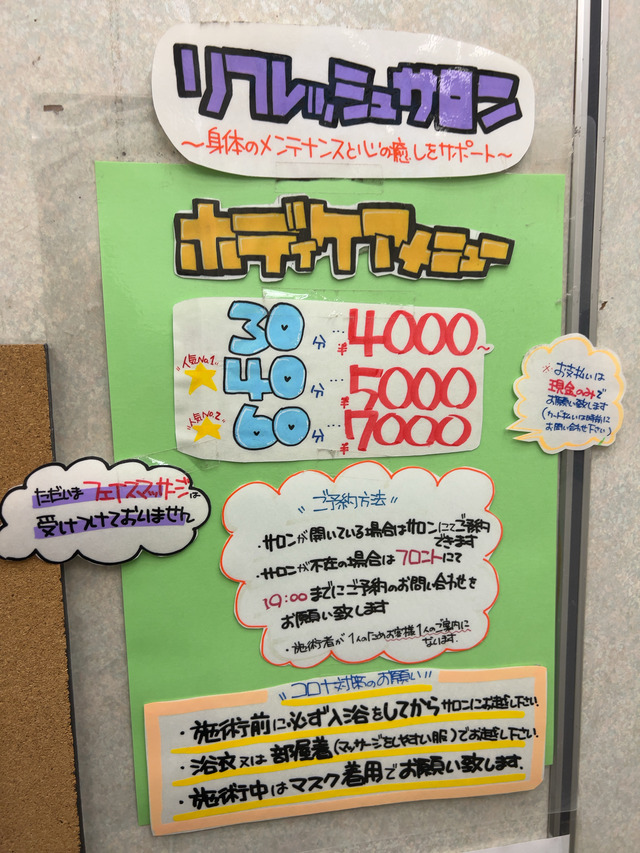 リフレッシュサロン
～身体のメンテナンスと心の癒しをサポート～
ボディケアメニュー
30分…¥4000～
"人気No.1"
40分…¥5000
"人気No.2"
60分…¥7000
※お支払いは
現金のみで
お願い致します
(カード払いは事前に
お問い合せ下さい)
ただいまフェイスマッサージは
受けつけておりません
"ご予約方法"
・サロンが開いている場合はサロンにてご予約
できます
・サロンが不在の場合はフロントにて
19:00までにご予約のお問い合わせを
お願い致します
・施術者が1人のためお客様1人のご案内に
なります.
"コロナ対策のお願い"
・施術前に必ず入浴をしてからサロンにお越し下さい.
・浴衣又は部屋着(マッサージをしやすい服)でお越し下さい.
・施術中はマスク着用でお願い致します.